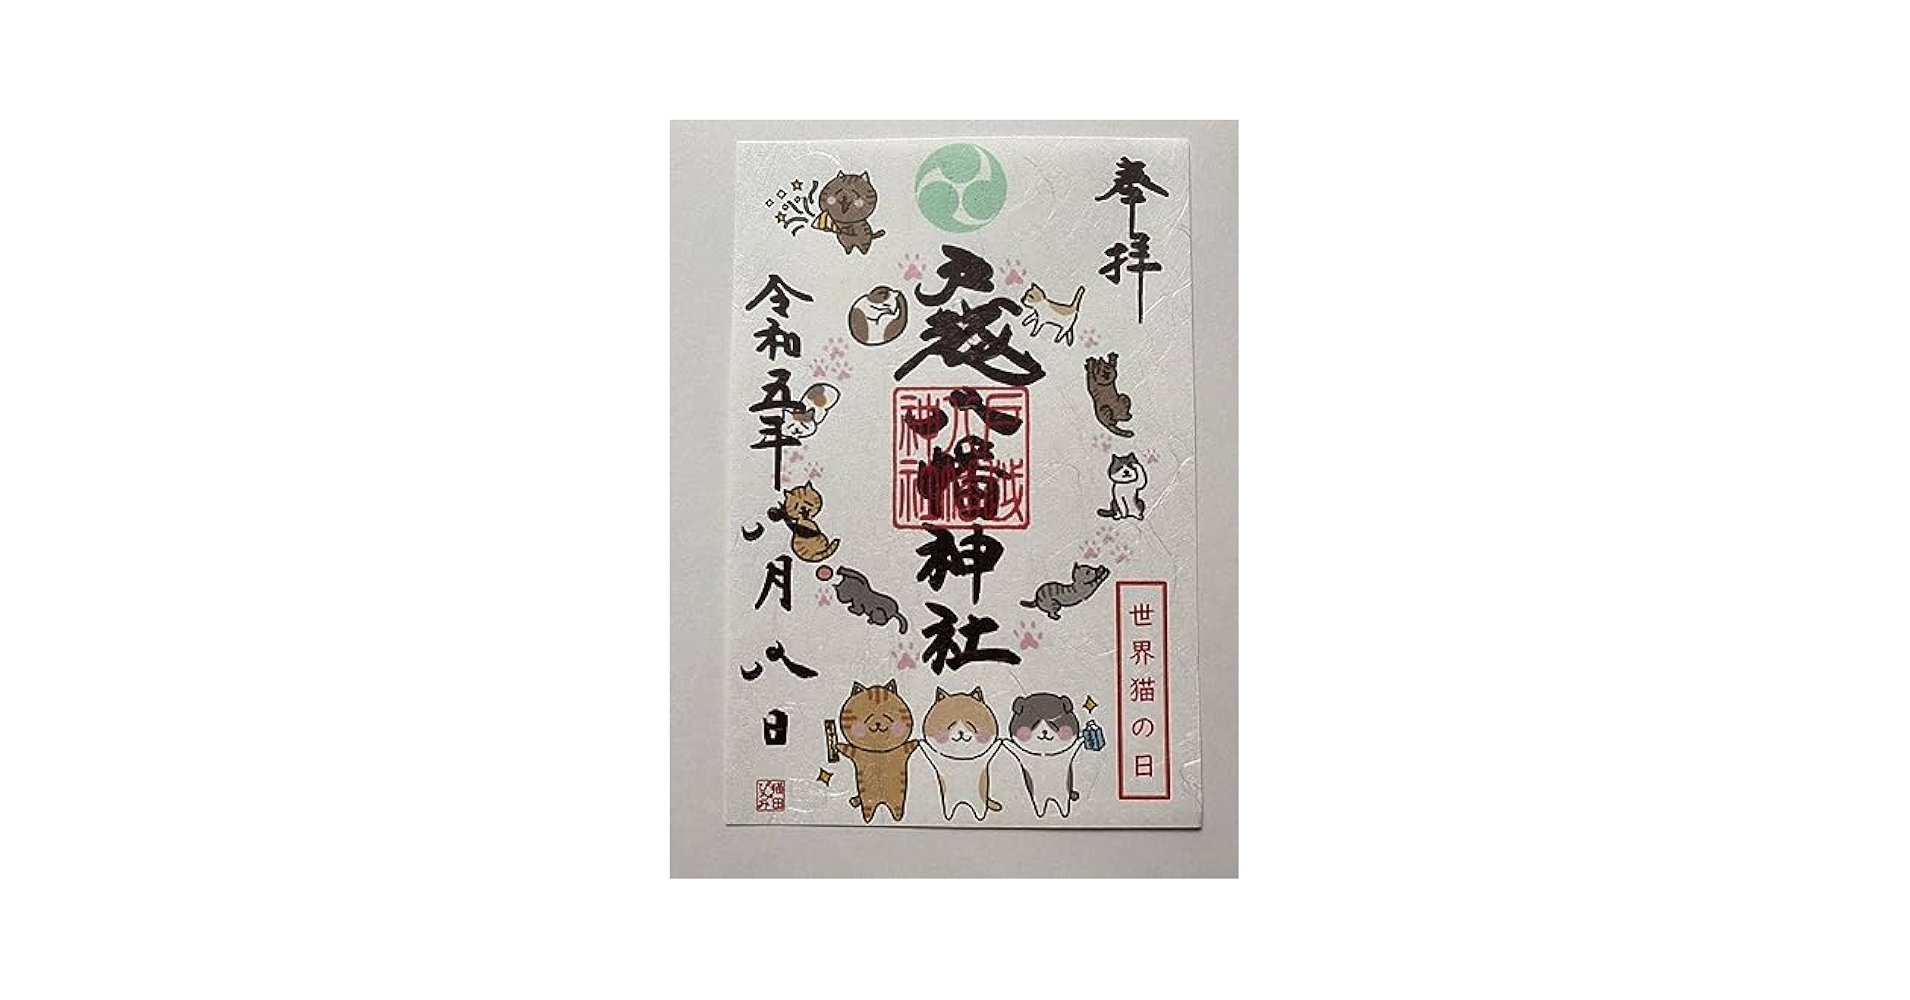 奉拝
戸越八幡神社
戸越八幡神社
令和五年八月八日
世界猫の日